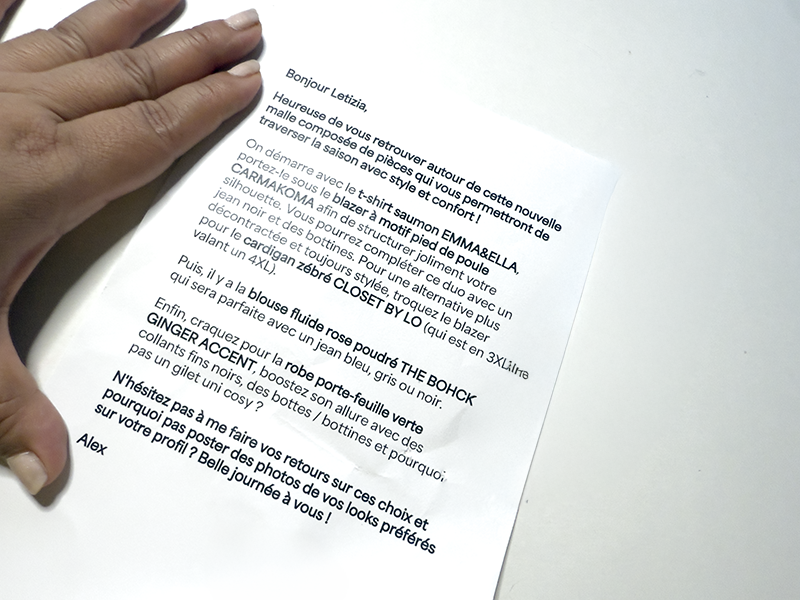 Bonjour Letizia,
Heureuse de vous retrouver autour de cette nouvelle
malle composée de pièces qui vous permettront de
traverser la saison avec style et confort !
On démarre avec le t-shirt saumon EMMA&ELLA,
portez-le sous le blazer à motif pied de poule
CARMAKOMA afin de structurer joliment votre
silhouette. Vous pourrez compléter ce duo avec un
jean noir et des bottines. Pour une alternative plus
décontractée et toujours stylée, troquez le blazer
pour le cardigan zébré CLOSET BY LO (qui est en 3XL
valant un 4XL).
Puis, il y a la blouse fluide rose poudré THE BOHCK
qui sera parfaite avec un jean bleu, gris ou noir.
Enfin, craquez pour la robe porte-feuille verte
GINGER ACCENT, boostez son allure avec des
collants fins noirs, des bottes / bottines et pourquoi
pas un gilet uni cosy ?
N'hésitez pas à me faire vos retours sur ces choix et
pourquoi pas poster des photos de vos looks préférés
sur votre profil ? Belle journée à vous !
Alex